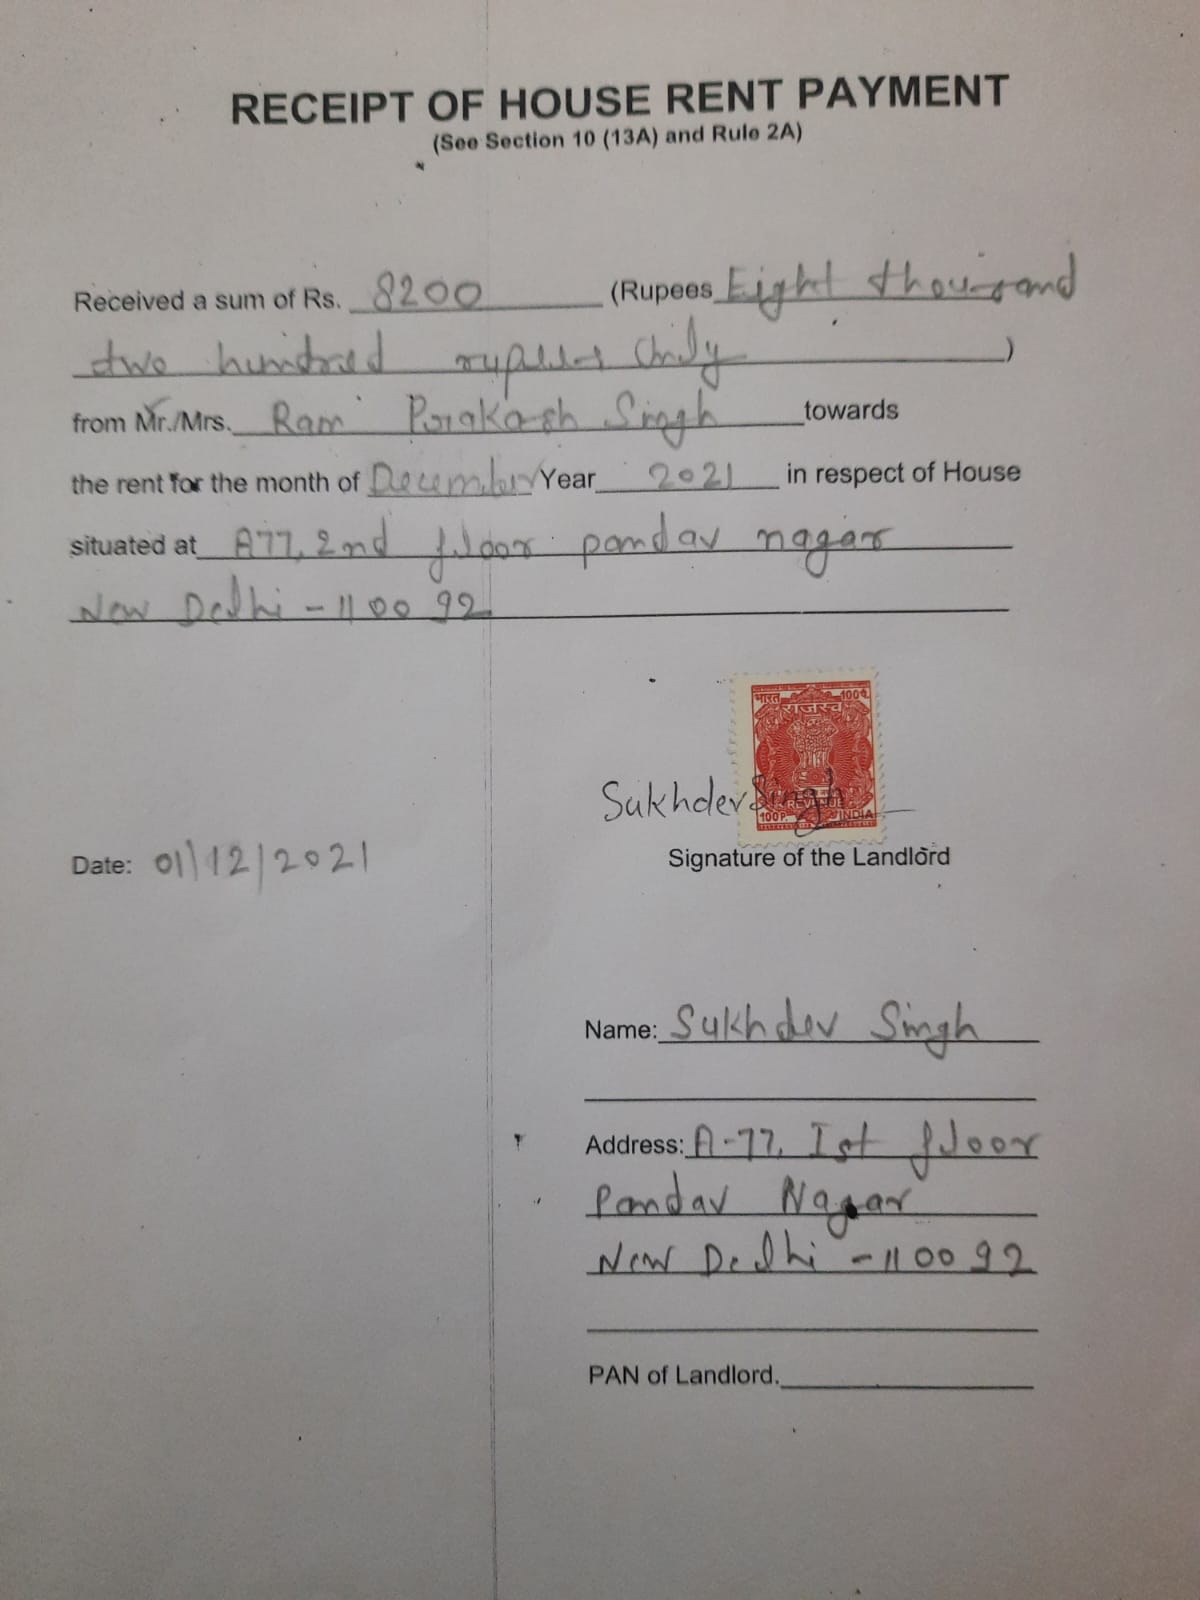 RECEIPT OF HOUSE RENT PAYMENT
(See Section 10 (13A) and Rule 2A)
Received a sum of Rs. 8200 (Rupees Eight thousand
two hundred rupees only )
from Mr./Mrs. Ram Prakash Singh towards
the rent for the month of December Year 2021 in respect of House
situated at A77, 2nd floor pandav nagar
New Delhi - 110092
भारत 100प.
राजस्व
REVENUE
100P. INDIA
Sukhdev Singh
Signature of the Landlord
Date: 01/12/2021
Name: Sukhdev Singh
Address: A-77, Ist floor
Pandav Nagar
New Delhi - 110092
PAN of Landlord.